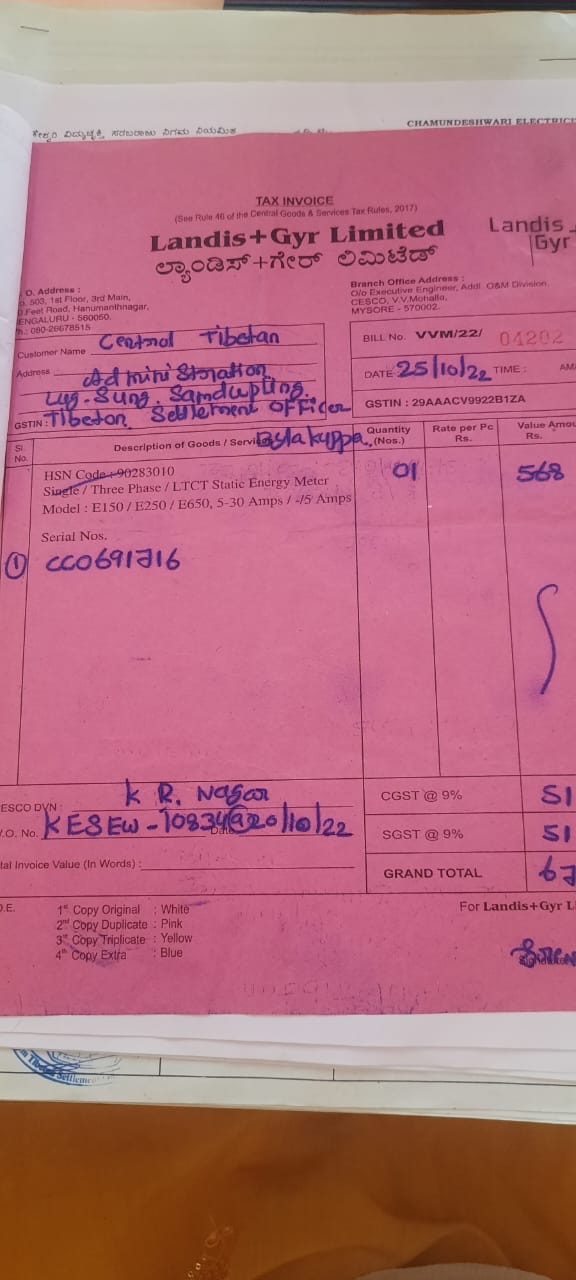 ಸರಬರಾಜು ನಿಗಮ ನಿಯಮಿತ
CHAMUNDESHWARI ELECTRIC
TAX INVOICE
(See Rule 46 of the Central Goods & Services Tax Rules, 2017)
Landis+Gyr Limited
ಲ್ಯಾಂಡಿಸ್+ಗೇರ್ ಲಿಮಿಟೆಡ್
Landis
Gyr
O. Address :
503, 1st Floor, 3rd Main,
Feet Road, Hanumanthnagar,
ENGALURU - 560050.
080-26678515
Branch Office Address :
O/o Executive Engineer, Addl. O&M Division,
CESCO, V.V.Mohalla,
MYSORE - 570002.
Customer Name Central Tibetan
Address Administration
Lug. Sung. Samdupling.
GSTIN : Tibetan Settlement Officer
Bylakuppa
BILL No. VVM/22/ 04202
DATE 25/10/22 TIME : AM
GSTIN : 29AAACV9922B1ZA
Sl. No. Description of Goods / Servi Quantity (Nos.) Rate per Pc Rs. Value Amou Rs.
HSN Code : 90283010
Single / Three Phase / LTCT Static Energy Meter 01 568
Model : E150 / E250 / E650, 5-30 Amps / -/5 Amps
Serial Nos.
① CC0691716
ESCO DVN : K R. Nagar
CGST @ 9% 51
.O. No. KESEW-10834 @ 20/10/22
SGST @ 9% 51
tal Invoice Value (In Words) :
GRAND TOTAL 67
O.E.
1st Copy Original : White
2nd Copy Duplicate : Pink
3rd Copy Triplicate : Yellow
4th Copy Extra : Blue
For Landis+Gyr L